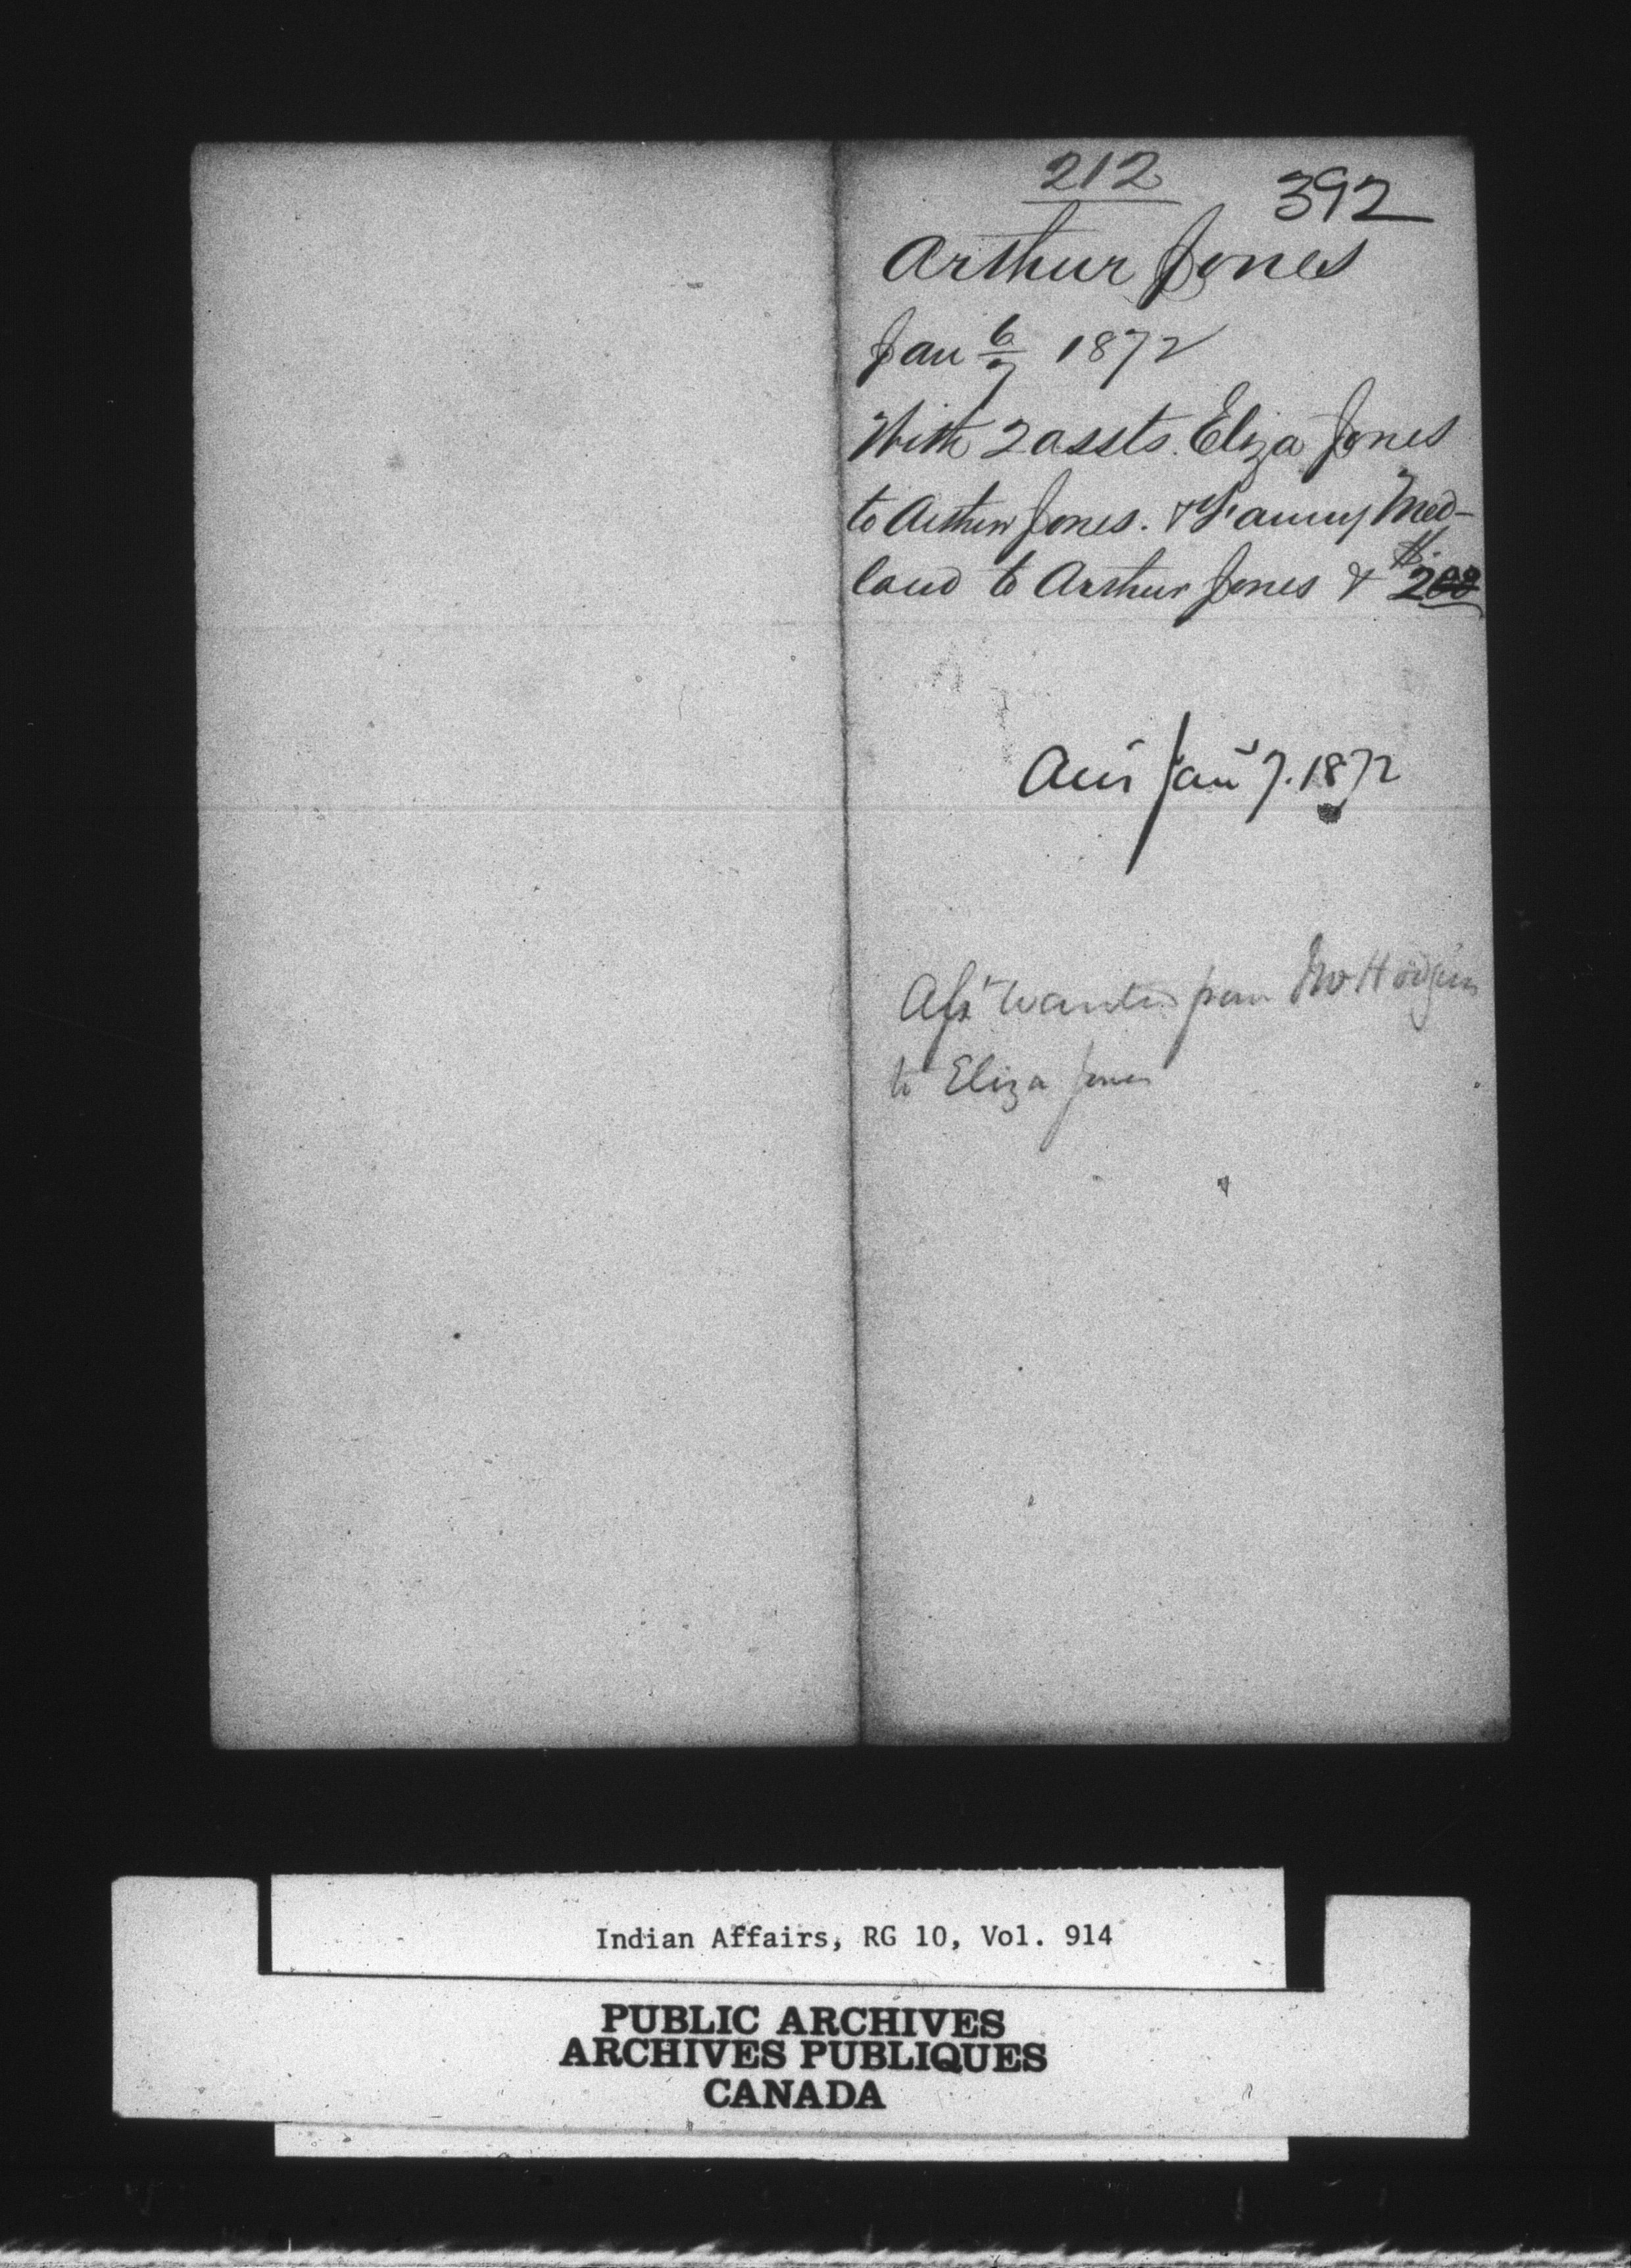 212
392
Arthur Jones
Jan 6/7 1872
With 2 assts. Eliza Jones
to Arthur Jones. & Fanny Med-
land to Arthur Jones & $2.00
Ans Jan 7. 1872
Asst Wanted from Hodgins
to Eliza Jones
Indian Affairs, RG 10, Vol. 914
PUBLIC ARCHIVES
ARCHIVES PUBLIQUES
CANADA